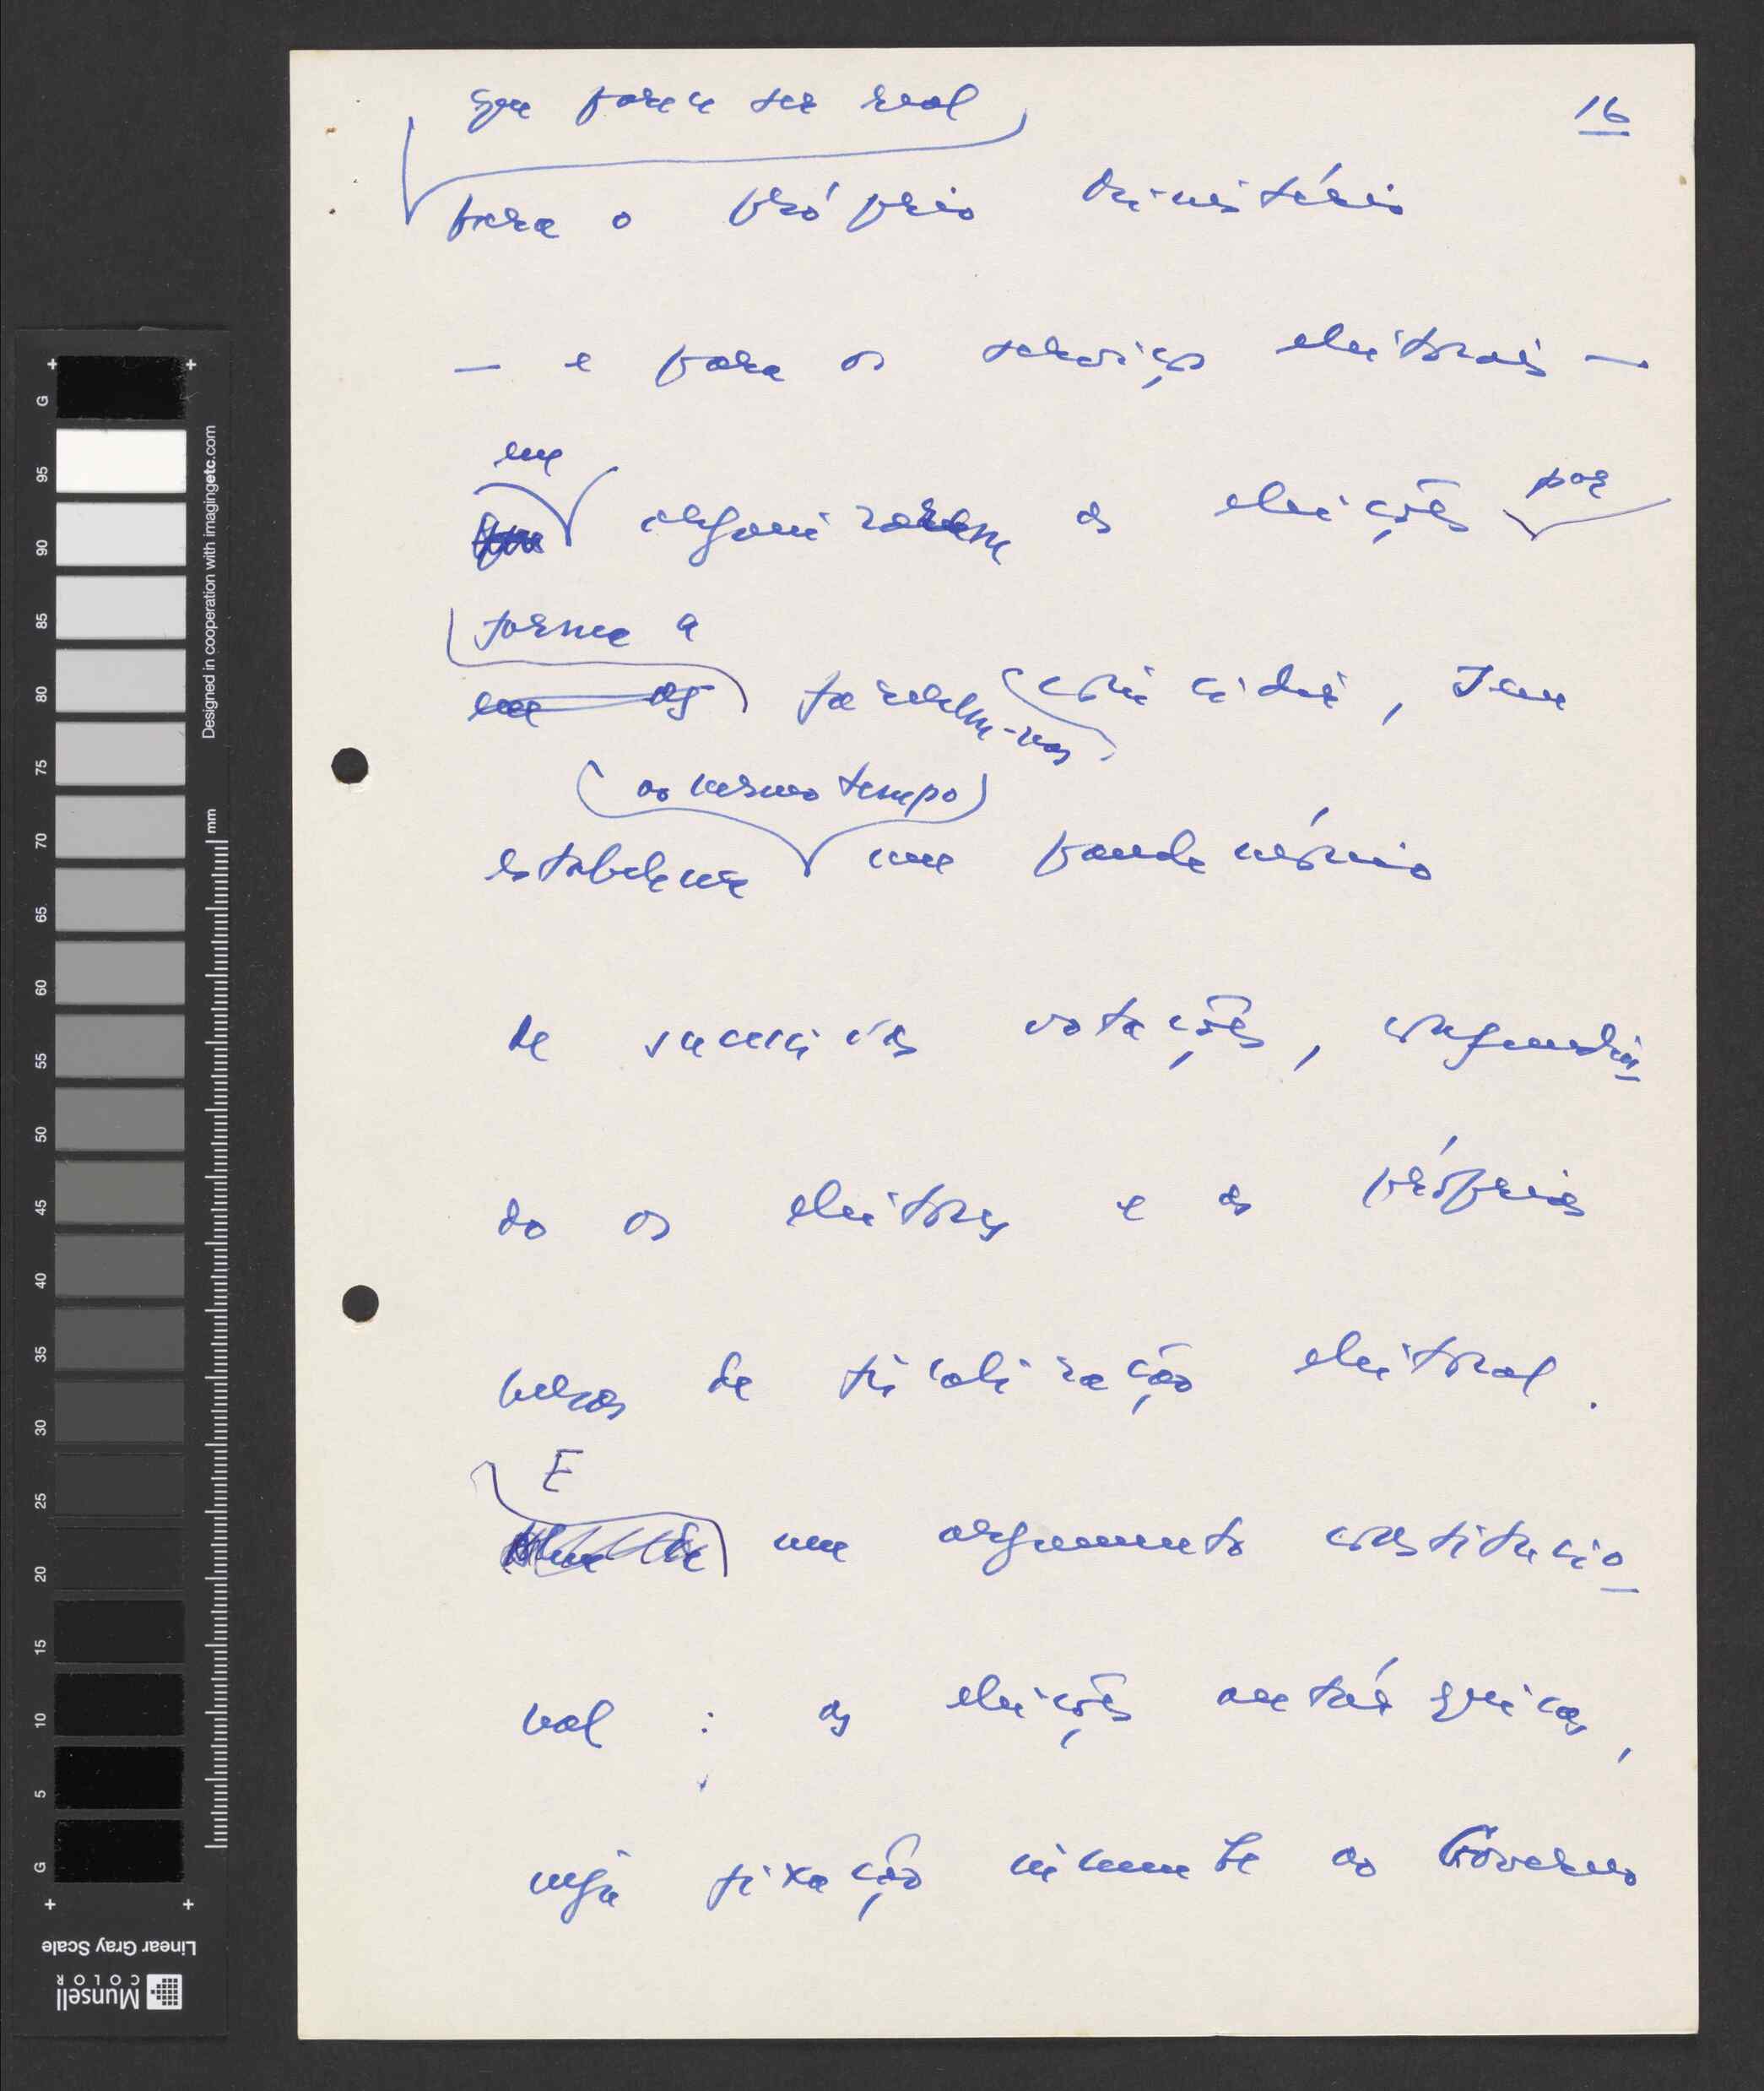 16
que parece ser real
para o próprio Ministério
— e para os serviços eleitorais —
em
organizarem as eleições por
forma a
em as fazerem-nas coincidir, sem
ao mesmo tempo
estabelecer um pandemónio
de sucessivas votações, confundin
do os eleitores e as próprias
mesas de fiscalização eleitoral.
E
um argumento constitucio
nal : as eleições autárquicas,
cuja fixação incumbe ao Governo
G 95 90 85 80 75 70 65 60 55 50 45 40 35 30 25 20 15 10 5 G
Designed in cooperation with imagingetc.com
mm
Linear Gray Scale
Munsell
COLOR